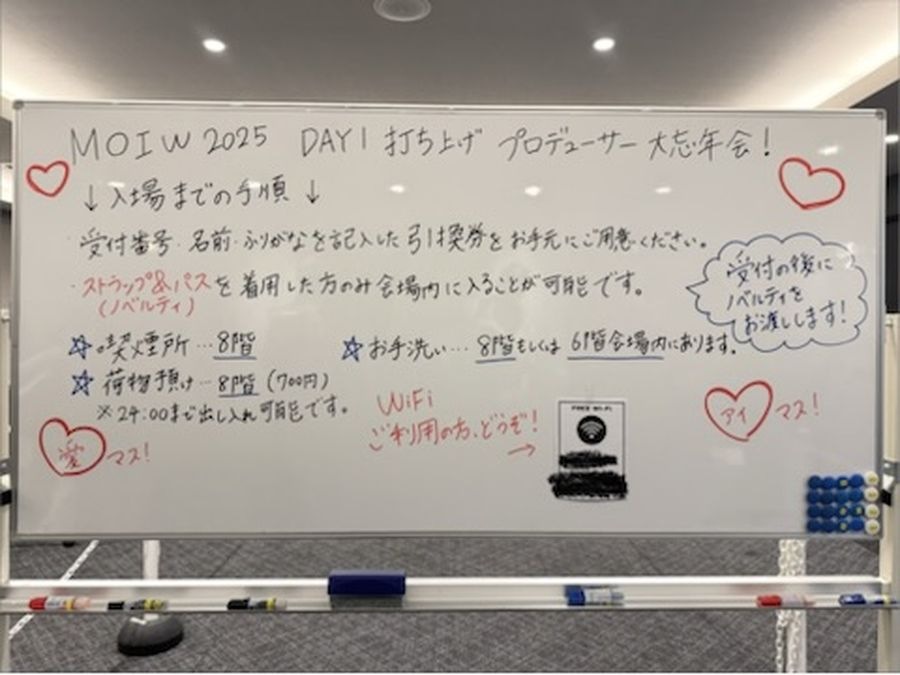 MOIW 2025 DAY1 打ち上げ プロデューサー大忘年会!
↓ 入場までの手順 ↓
・受付番号・名前・ふりがなを記入した引換券をお手元にご用意ください。
・ストラップ&パスを着用した方のみ会場内に入ることが可能です。
(ノベルティ)
受付の後に
ノベルティを
お渡しします!
☆喫煙所…8階
☆お手洗い…8階もしくは6階会場内にあります。
☆荷物預け…8階(700円)
※24:00まで出し入れ可能です。
WiFi
ご利用の方、どうぞ!
→
FREE Wi-Fi
愛マス!
アイマス!